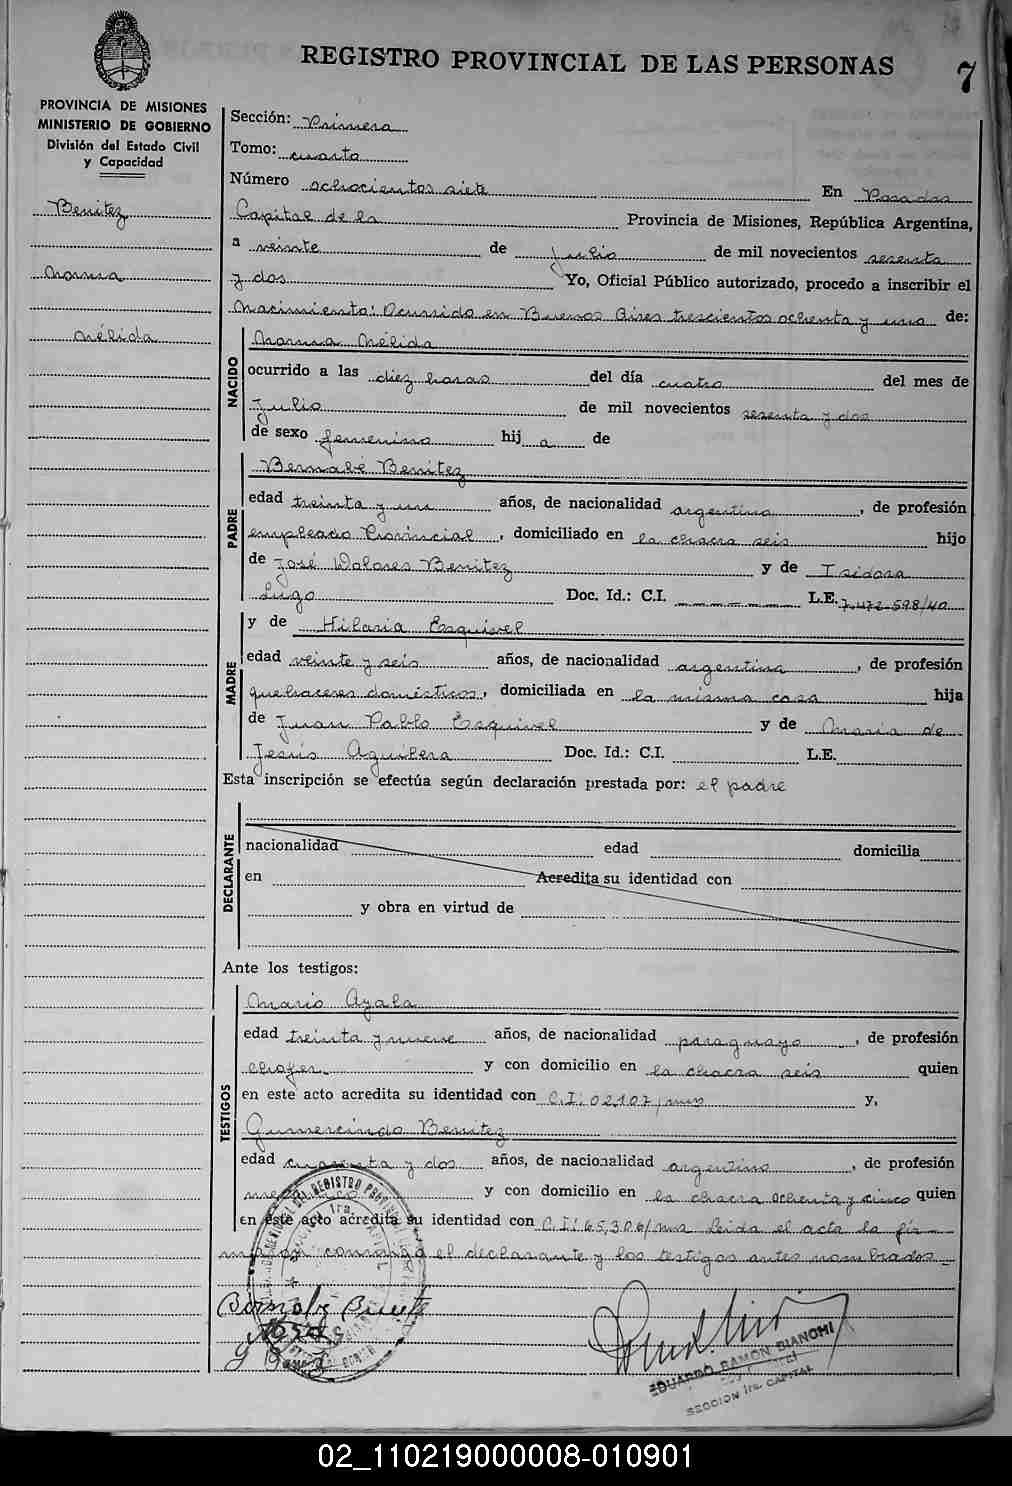 REGISTRO PROVINCIAL DE LAS PERSONAS
7
PROVINCIA DE MISIONES
MINISTERIO DE GOBIERNO
División del Estado Civil
y Capacidad
Benitez
Norma
Nélida
Sección: Primera
Tomo: cuarto
Número ochocientos siete En Posadas
Capital de la Provincia de Misiones, República Argentina,
a veinte de Julio de mil novecientos sesenta
y dos Yo, Oficial Público autorizado, procedo a inscribir el
Nacimiento: Ocurrido en Buenos Aires trescientos ochenta y uno de:
NACIDO
Norma Nélida
ocurrido a las diez horas del día cuatro del mes de
Julio de mil novecientos sesenta y dos
de sexo femenino hij a de
PADRE
Bernabé Benitez
edad treinta y un años, de nacionalidad argentina, de profesión
empleado Provincial, domiciliado en la chacra seis hijo
de José Dolores Benitez y de Isidora
Lugo Doc. Id.: C.I. L.E. 7.472.598/40
MADRE
y de Hilaria Esquivel
edad veinte y seis años, de nacionalidad argentina, de profesión
quehaceres domésticos, domiciliada en la misma casa hija
de Juan Pablo Esquivel y de María de
Jesús Aguilera Doc. Id.: C.I. L.E.
Esta inscripción se efectúa según declaración prestada por: el padre
DECLARANTE
nacionalidad edad domicilia
en Acredita su identidad con
y obra en virtud de
Ante los testigos:
TESTIGOS
Mario Ayala
edad treinta y nueve años, de nacionalidad paraguayo, de profesión
chofer y con domicilio en la chacra seis quien
en este acto acredita su identidad con C.I: 02.107/mns y,
Gumercindo Benitez
edad cuarenta y dos años, de nacionalidad argentino, de profesión
y con domicilio en la chacra ochenta y cinco quien
en este acto acredita su identidad con C.I: 65,306/mns Leida el acta la fir
conmigo el declarante y los testigos antes nombrados
EDUARDO RAMON BIANCHI
SECCION 1ra. CAPITAL
02_110219000008-010901